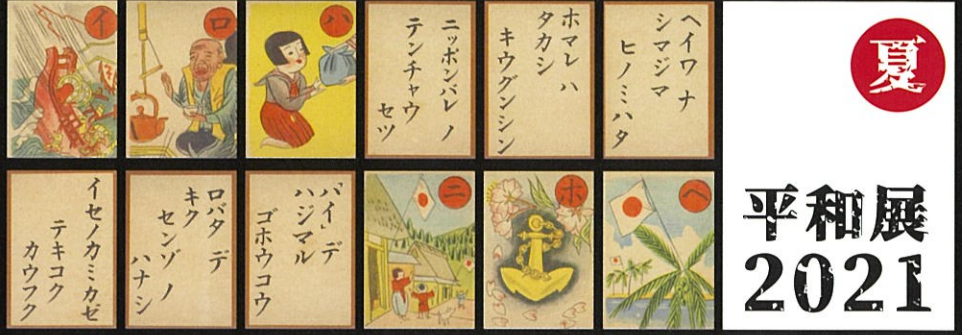 イ
ロ
ハ
ニッポンバレ ノ
テンチャウ
セツ
ホマレ ハ
タカシ
キウグンシン
ヘイワ ナ
シマジマ
ヒノミハタ
イセノカミカゼ
テキコク
カウフク
ロバタ デ
キク
センゾ ノ
ハナシ
「ハイ」デ
ハジマル
ゴホウコウ
ニ
ホ
ヘ
夏
平和展
2021